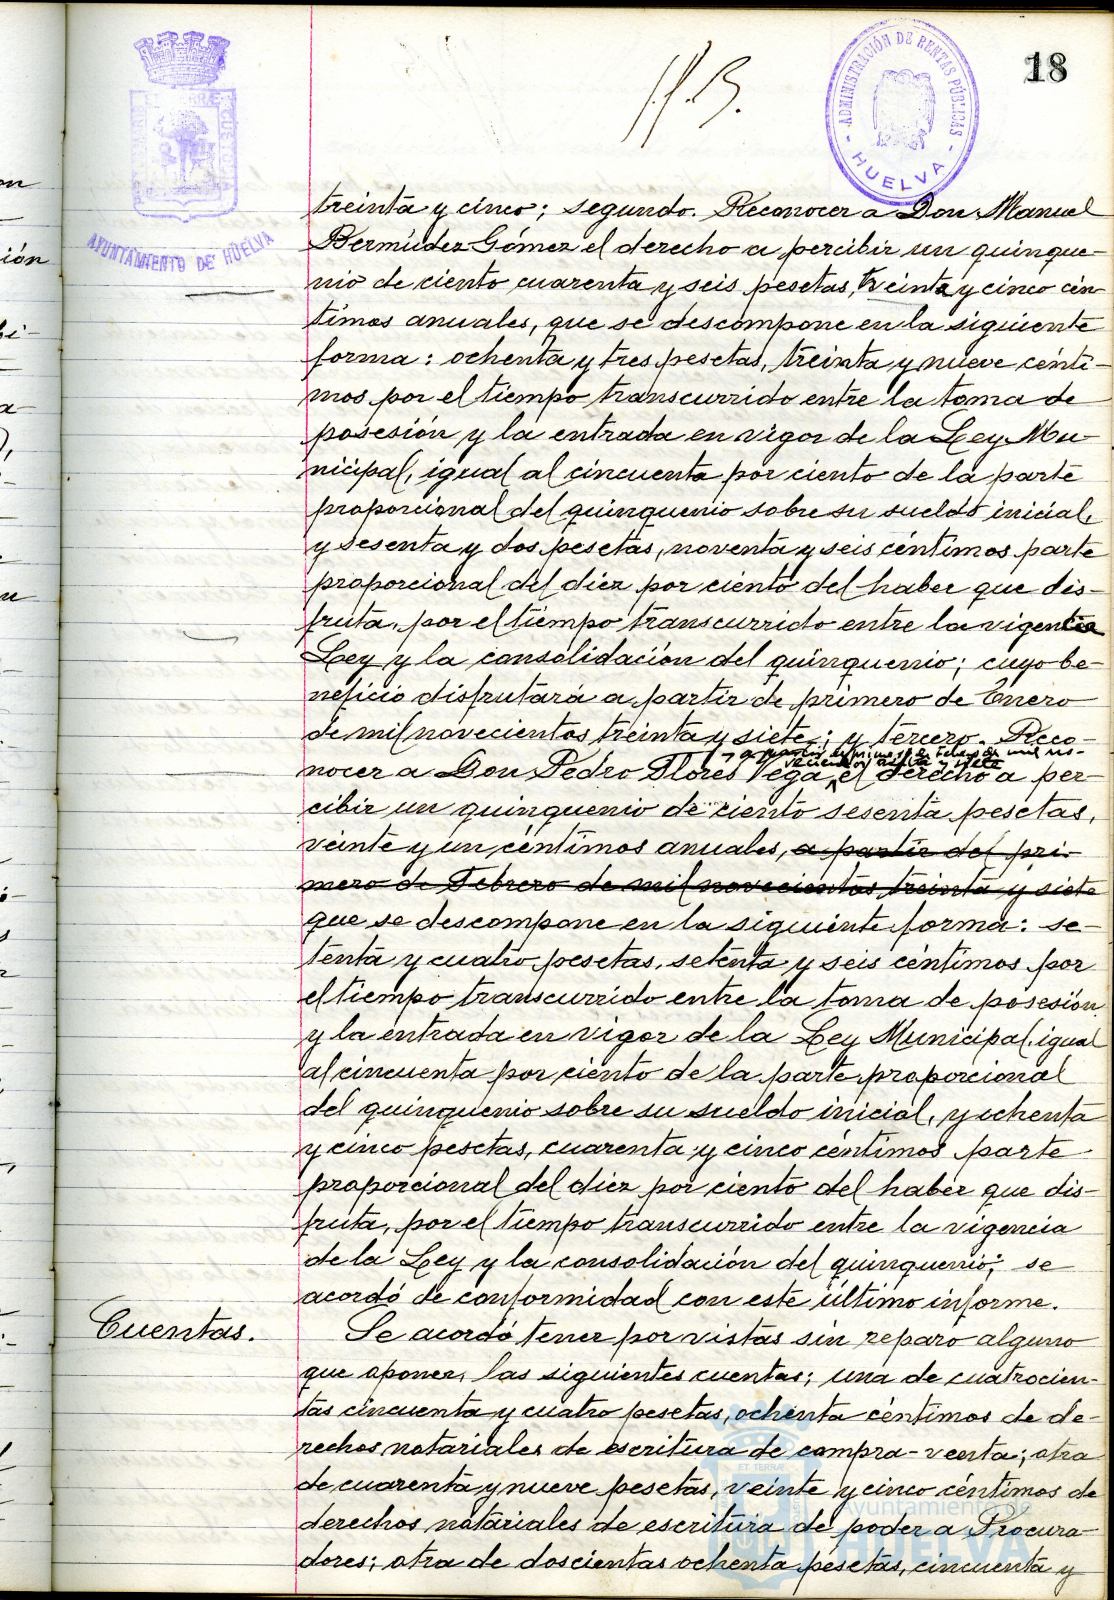 18
ADMINISTRACIÓN DE RENTAS PÚBLICAS
HUELVA
AYUNTAMIENTO DE HUELVA
treinta y cinco; segundo. Reconocer a Don Manuel
Bermúdez Gómez el derecho a percibir un quinque-
nio de ciento cuarenta y seis pesetas, treinta y cinco cén-
timos anuales, que se descompone en la siguiente
forma: ochenta y tres pesetas, treinta y nueve cénti-
mos por el tiempo transcurrido entre la toma de
posesión y la entrada en vigor de la Ley Mu-
nicipal, igual al cincuenta por ciento de la parte
proporcional del quinquenio sobre su sueldo inicial,
y sesenta y dos pesetas, noventa y seis céntimos parte
proporcional del diez por ciento del haber que dis-
fruta, por el tiempo transcurrido entre la vigencia
Ley y la consolidación del quinquenio; cuyo be-
neficio disfrutará a partir de primero de Enero
de mil novecientos treinta y siete; y tercero. Reco-
a partir del primero de Febrero de mil no-
vecientos treinta y siete
nocer a Don Pedro Flores Vega, el derecho a per-
cibir un quinquenio de ciento sesenta pesetas,
veinte y un céntimos anuales, a partir del pri-
mero de Febrero de mil novecientos treinta y siete
que se descompone en la siguiente forma: se-
tenta y cuatro pesetas, setenta y seis céntimos por
el tiempo transcurrido entre la toma de posesión
y la entrada en vigor de la Ley Municipal, igual
al cincuenta por ciento de la parte proporcional
del quinquenio sobre su sueldo inicial, y ochenta
y cinco pesetas, cuarenta y cinco céntimos parte
proporcional del diez por ciento del haber que dis-
fruta, por el tiempo transcurrido entre la vigencia
de la Ley y la consolidación del quinquenio; se
acordó de conformidad con este último informe.
Cuentas.
Se acordó tener por vistas sin reparo alguno
que oponer, las siguientes cuentas; una de cuatrocien-
tas cincuenta y cuatro pesetas, ochenta céntimos de de-
rechos notariales de escritura de compra-venta; otra
de cuarenta y nueve pesetas, veinte y cinco céntimos de
derechos notariales de escritura de poder a Procura-
dores; otra de doscientas ochenta pesetas, cincuenta y
Ayuntamiento de
HUELVA